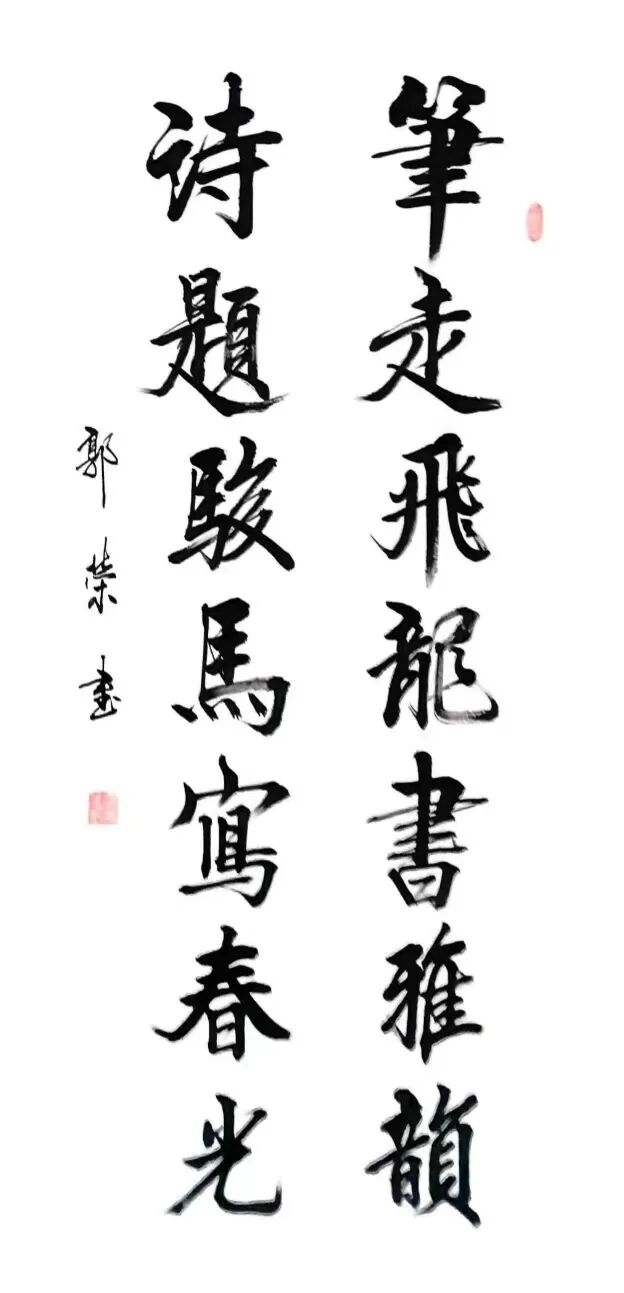 筆走飛龍書雅韻
诗題駿馬寫春光
郭荣書